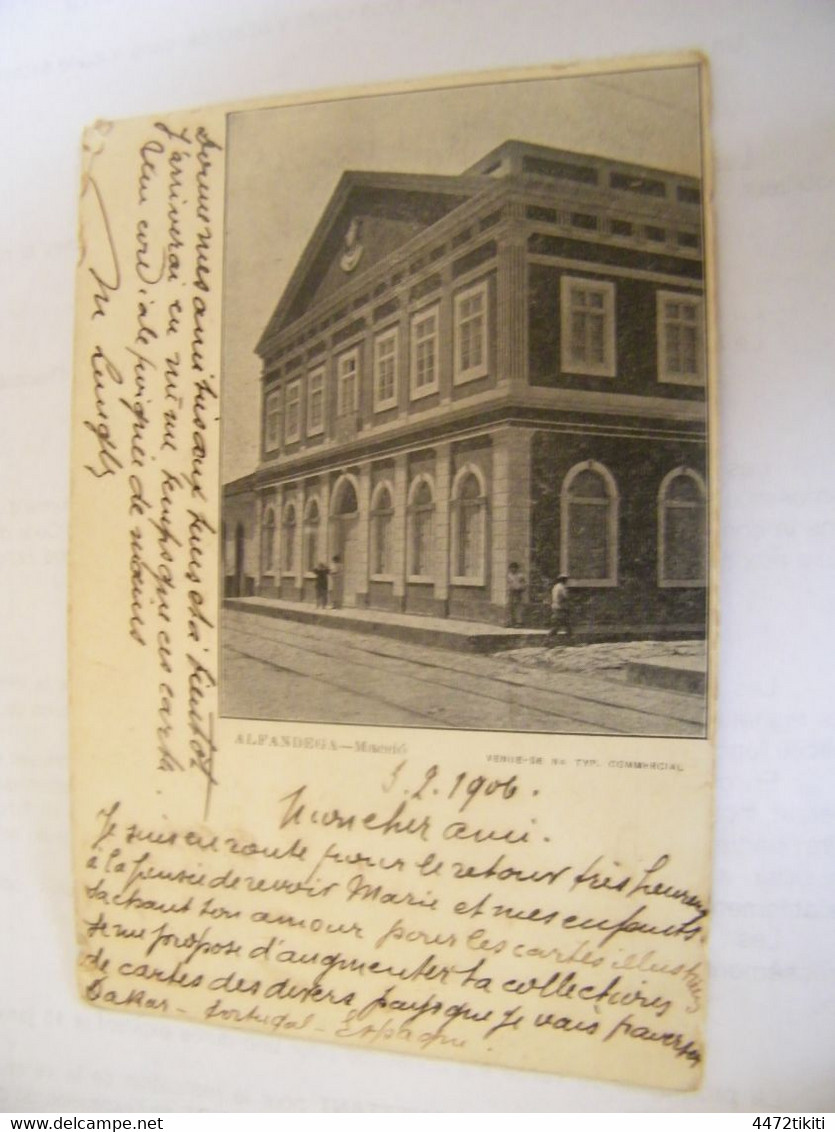 ALFANDEGA—Maceió
VENDE-SE NA TYP. COMMERCIAL
5.2.1906.
Mon cher ami.
Je suis en route pour le retour très heureux
à la pensée de revoir Marie et mes enfants.
Sachant ton amour pour les cartes illustrées
je me propose d'augmenter ta collection
de cartes des divers pays que je vais traverser
Dakar - Portugal - Espagne.
mes amitiés aux tiens et à bientôt
J'arriverai en même temps que ces cartes.
Une cordiale poignée de mains
delcampe.net
4472tikiti